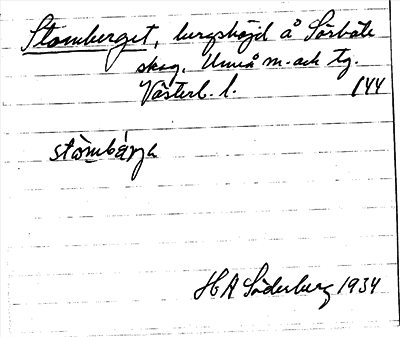 Stomberget, bergshöjd å Sörböle
skog, Umeå m. och tg.
Västerb. l. 144
stòmbárja
HA Söderberg 1934